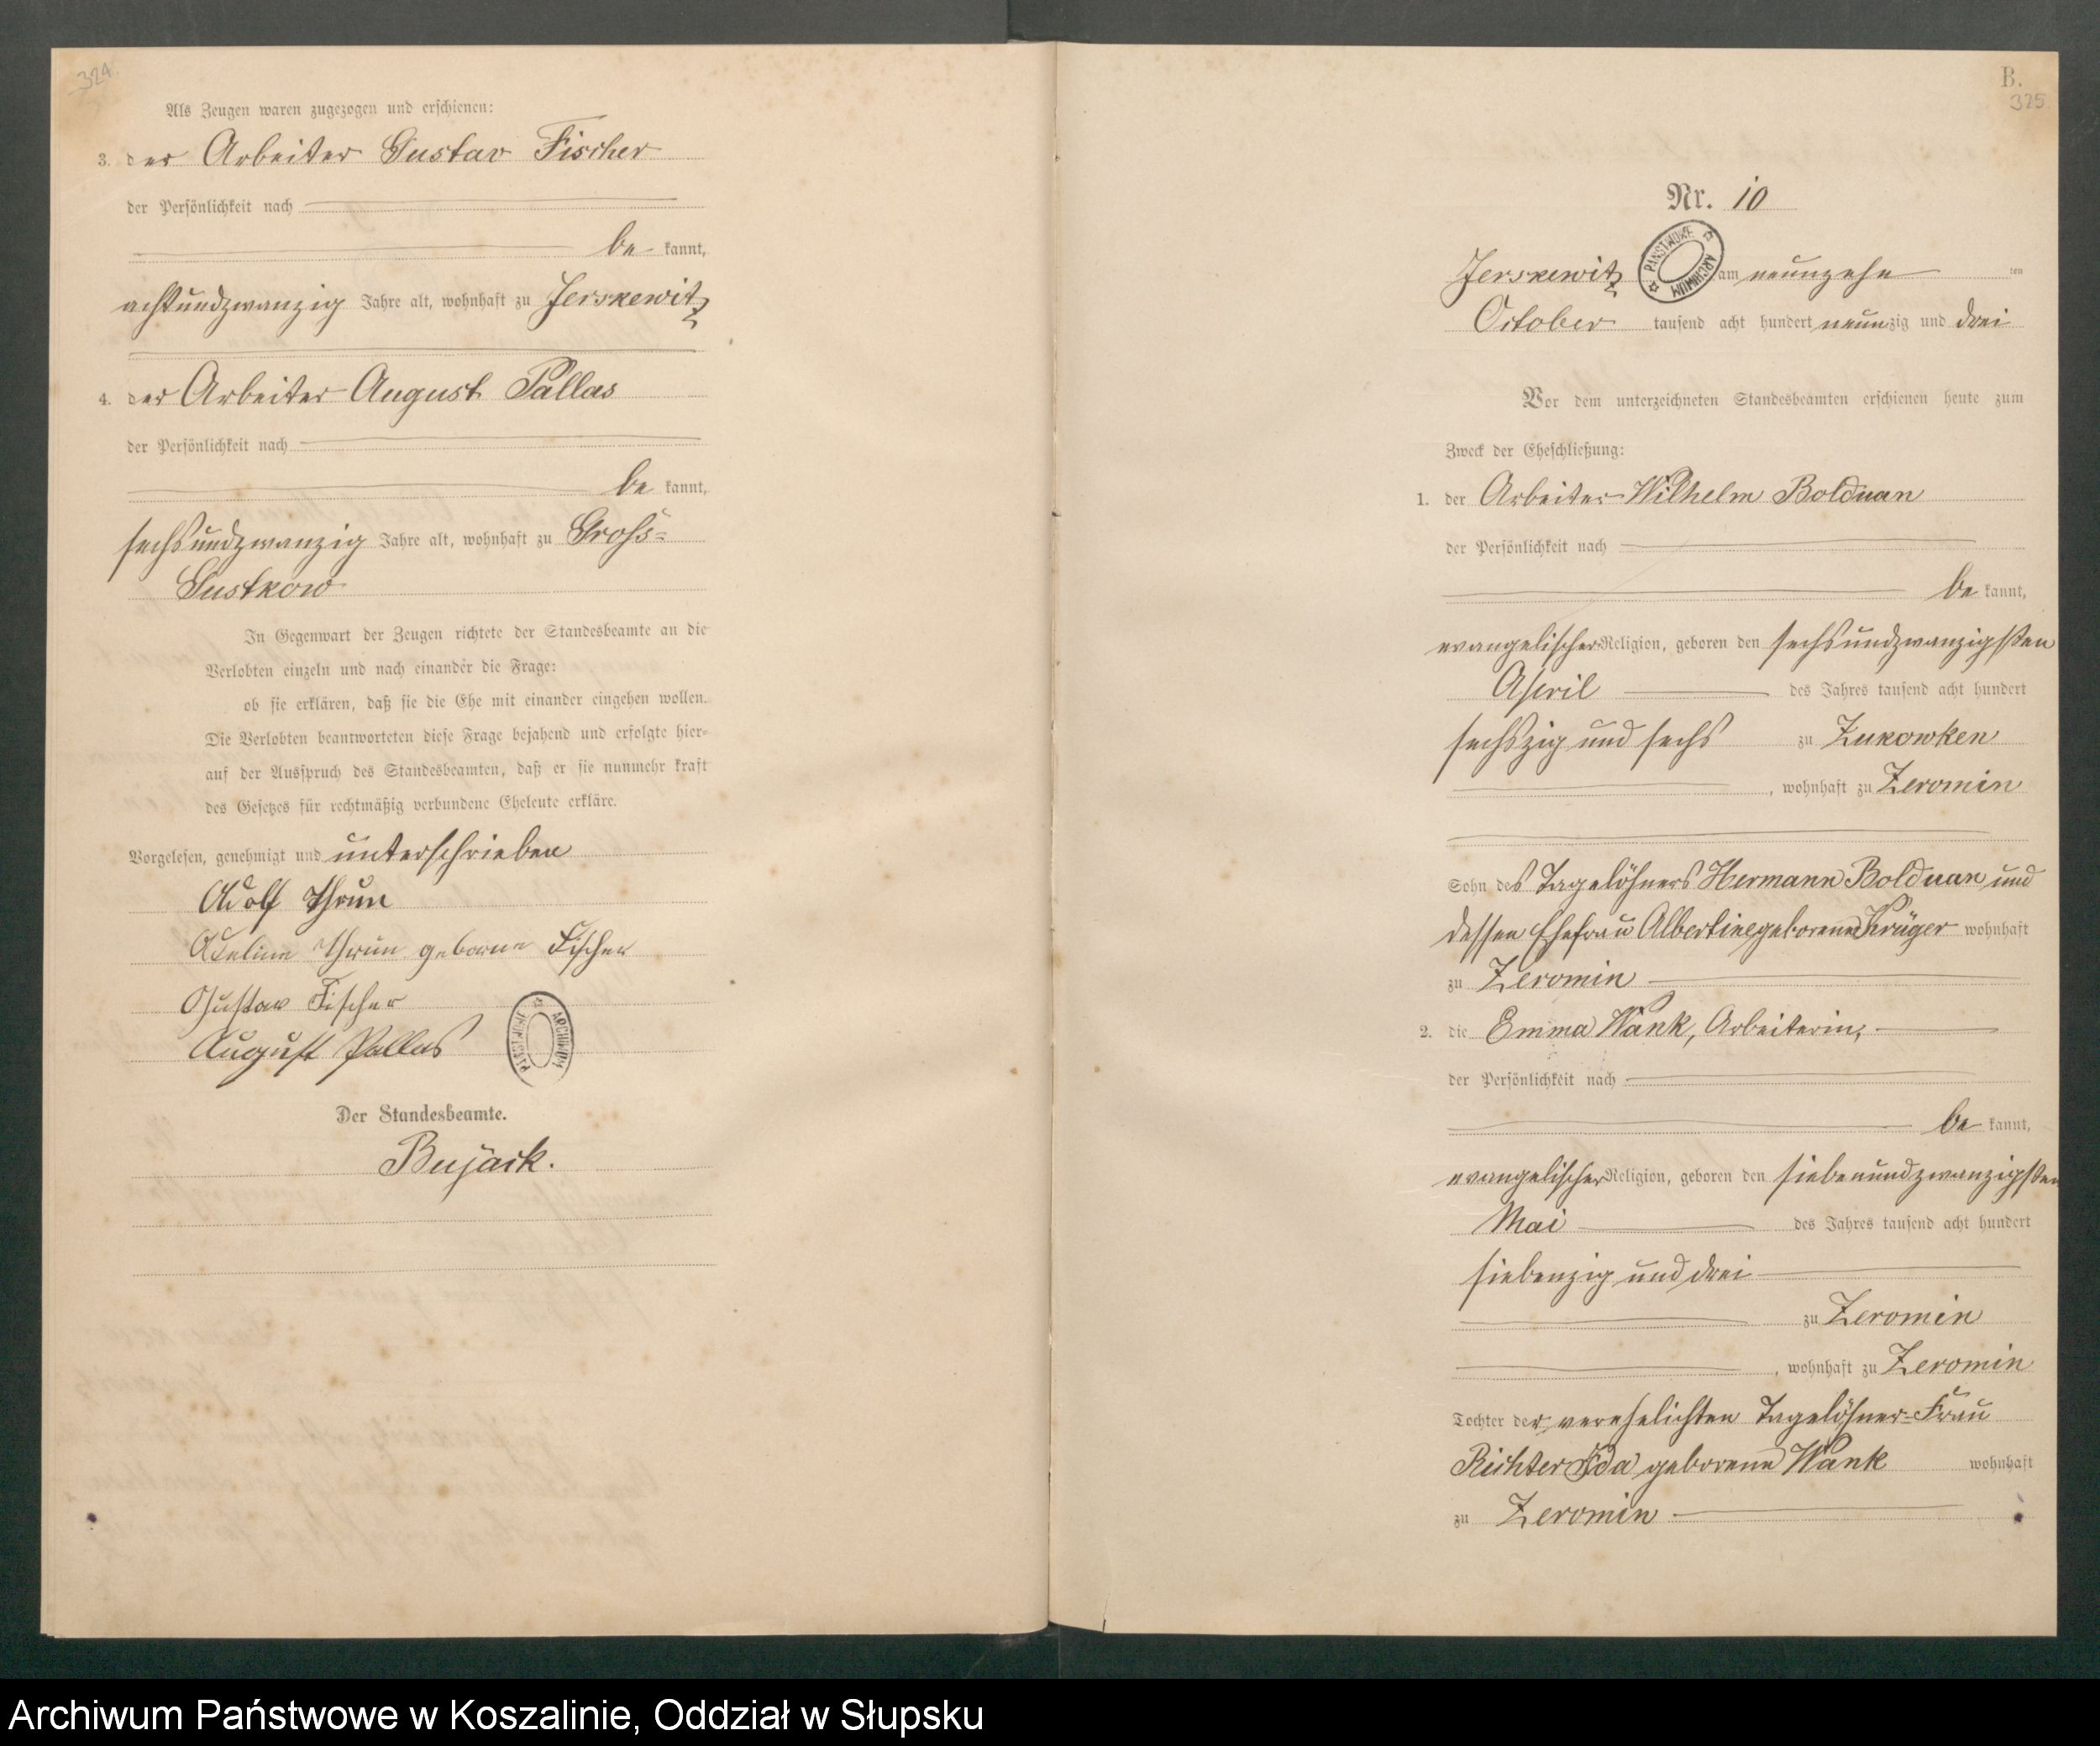 324.
Als Zeugen waren zugezogen und erschienen:
3. der Arbeiter Gustav Fischer
der Persönlichkeit nach
be kannt,
achtundzwanzig Jahre alt, wohnhaft zu Jerskewitz
4. der Arbeiter August Pallas
der Persönlichkeit nach
be kannt,
sechsundzwanzig Jahre alt, wohnhaft zu Gross=
Gustkow
In Gegenwart der Zeugen richtete der Standesbeamte an die
Verlobten einzeln und nach einander die Frage:
ob sie erklären, daß sie die Ehe mit einander eingehen wollen.
Die Verlobten beantworteten diese Frage bejahend und erfolgte hier=
auf der Ausspruch des Standesbeamten, daß er sie nunmehr kraft
des Gesetzes für rechtmäßig verbundene Eheleute erkläre.
Vorgelesen, genehmigt und unterschrieben
Adolf Thrun
Adeline Thrun geborne Fischer
Gustav Fischer
August Pallas
PANSTWOWE ARCHIWUM
Der Standesbeamte.
Bujack.
B.
325
Nr. 10
Jerskewitz am neunzehn ten
PANSTWOWE ARCHIWUM
October tausend acht hundert neunzig und drei
Vor dem unterzeichneten Standesbeamten erschienen heute zum
Zweck der Eheschließung:
1. der Arbeiter Wilhelm Bolduan
der Persönlichkeit nach
be kannt,
evangelischer Religion, geboren den sechsundzwanzigsten
April des Jahres tausend acht hundert
sechszig und sechs zu Zukowken
, wohnhaft zu Zeromin
Sohn des Tagelöhners Hermann Bolduan und
dessen Ehefrau Albertine geborene Krüger wohnhaft
zu Zeromin
2. die Emma Wank, Arbeiterin,
der Persönlichkeit nach
be kannt,
evangelischer Religion, geboren den siebenundzwanzigsten
Mai des Jahres tausend acht hundert
siebenzig und drei
zu Zeromin
, wohnhaft zu Zeromin
Tochter der verehelichten Tagelöhner=Frau
Richter Ida geborene Wank wohnhaft
zu Zeromin
Archiwum Państwowe w Koszalinie, Oddział w Słupsku